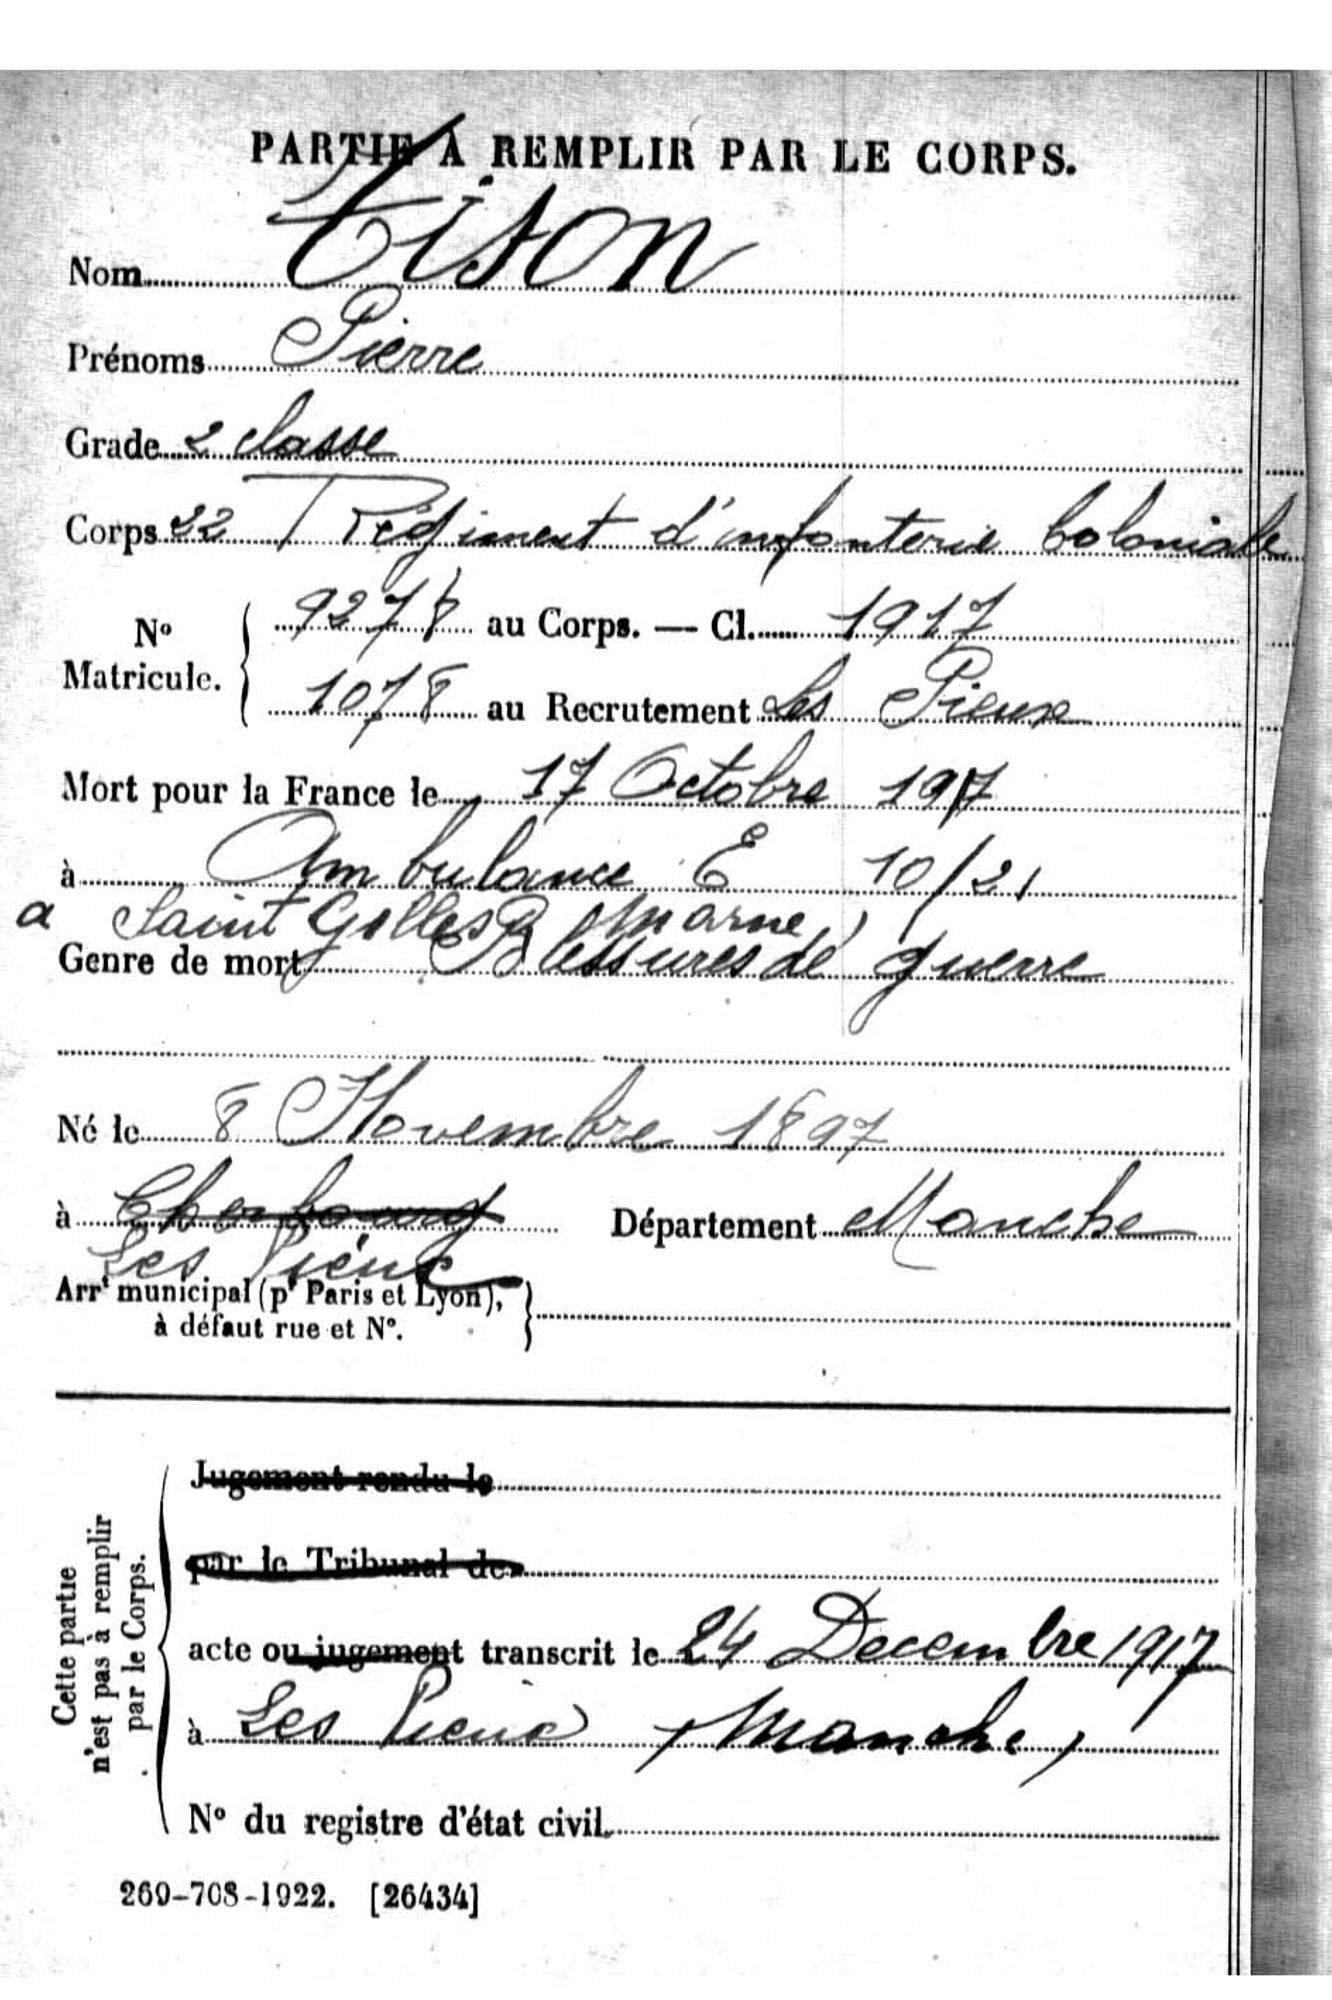 PARTIE À REMPLIR PAR LE CORPS.
Nom Tison
Prénoms Pierre
Grade 2 classe
Corps 22 Régiment d'infanterie Coloniale
No Matricule. 9278 au Corps. — Cl. 1917
1078 au Recrutement Les Pieux
Mort pour la France le 17 Octobre 1917
à Ambulance E 10/21
a Saint Gilles Marne
Genre de mort Blessures de guerre
Né le 8 Novembre 1897
à Cherbourg Département Manche
Les Pieux
Arrt municipal (pr Paris et Lyon),
à défaut rue et No.
Cette partie
n'est pas à remplir
par le Corps.
Jugement rendu le
par le Tribunal de
acte ou jugement transcrit le 24 Decembre 1917
à Les Pieux (Manche)
No du registre d'état civil
269-708-1922. [26434]